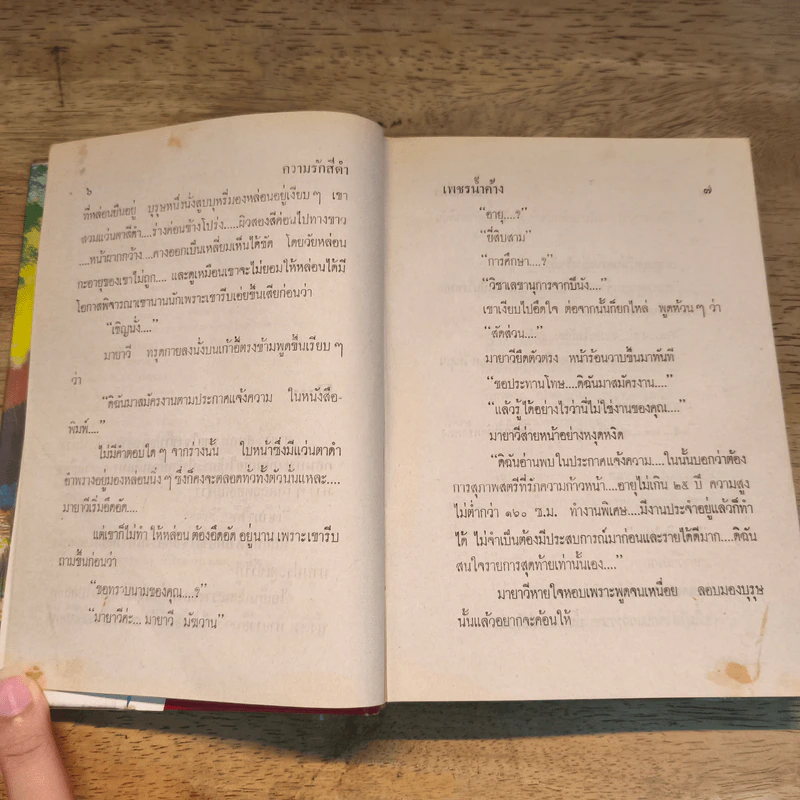 ความรักสีดำ
๖
ที่หล่อนยืนอยู่ บุรุษหนึ่งนั่งสูบบุหรี่มองหล่อนอยู่เงียบๆ เขา
สวมแว่นตาสีดำ....ร่างค่อนข้างโปร่ง.....ผิวสองสีค่อนไปทางขาว
....หน้าผากกว้าง ...คางออกเป็นเหลี่ยมเห็นได้ชัด โดยวัยหล่อน
กะอายุของเขาไม่ถูก.... และดูเหมือนเขาจะไม่ยอมให้หล่อนได้มี
โอกาสพิจารณาเขานานนักเพราะเขารีบเอ่ยขึ้นเสียก่อนว่า
“เชิญนั่ง....”
มายาวี ทรุดกายลงนั่งบนเก้าอี้ตรงข้ามพูดขึ้นเรียบๆ
ว่า
“ดิฉันมาสมัครงานตามประกาศแจ้งความ ในหนังสือ-
พิมพ์....”
ไม่มีคำตอบใดๆ จากร่างนั้น ใบหน้าซึ่งมีแว่นตาดำ
อำพรางอยู่มองหล่อนนิ่งๆ ซึ่งก็คงจะตลอดทั่วทั้งตัวนั่นแหละ....
มายาวีเริ่มอึดอัด....
แต่เขาก็ไม่ทำ ให้หล่อน ต้องอึดอัด อยู่นาน เพราะเขารีบ
ถามขึ้นก่อนว่า
“ขอทราบนามของคุณ....?”
“มายาวีค่ะ... มายาวี มัฆวาน”
เพชรน้ำค้าง
๗
“อายุ....?”
“ยี่สิบสาม”
“การศึกษา....?”
“วิชาเลขานุการจากปีนัง....”
เขาเงียบไปอึดใจ ต่อจากนั้นก็ยกไหล่ พูดห้วนๆ ว่า
“สัดส่วน....”
มายาวียืดตัวตรง หน้าร้อนวาบขึ้นมาทันที
“ขอประทานโทษ....ดิฉันมาสมัครงาน....”
“แล้วรู้ได้อย่างไรว่านี่ไม่ใช่งานของคุณ....”
มายาวีส่ายหน้าอย่างหงุดหงิด
“ดิฉันอ่านพบในประกาศแจ้งความ....ในนั้นบอกว่าต้อง
การสุภาพสตรีที่รักความก้าวหน้า....อายุไม่เกิน ๒๕ ปี ความสูง
ไม่ต่ำกว่า ๑๖๐ ซ.ม. ทำงานพิเศษ....มีงานประจำอยู่แล้วก็ทำ
ได้ ไม่จำเป็นต้องมีประสบการณ์มาก่อนและรายได้ดีมาก....ดิฉัน
สนใจรายการสุดท้ายเท่านั้นเอง....”
มายาวีหายใจหอบเพราะพูดจนเหนื่อย ลอบมองบุรุษ
นั้นแล้วอยากจะค้อนให้